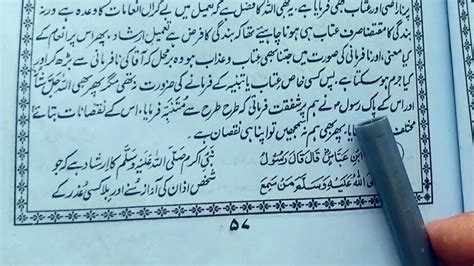 ناراضی اور عتاب بھی فرمایا ہے۔ یہ بھی اللہ کا فضل ہے کہ تعمیل میں بے گراں انعامات کا وعدہ ہے ورنہ
بندگی کا مقتضا صرف عتاب ہی ہونا چاہیئے تھا کہ بندگی کا فرض ہے تعمیل ارشاد، پھر اس پر انعام کے
کیا معنیٰ، اور نافرمانی کی صورت میں جتنا بھی عتاب و عذاب ہو وہ برمحل کہ آقا کی نافرمانی سے بڑھ کر اور
کیا جرم ہوسکتا ہے، پس کسی خاص عتاب یا تنبیہ کے فرمانے کی ضرورت نہ تھی مگر پھر بھی اللہ جَلَّ شَانُہٗ
اور اس کے پاک رسول نے ہم پر شفقت فرمائی کہ طرح طرح سے متنبّہ فرمایا، اس کے نقصانات بتائے
مختلف یا، پھر بھی ہم نہ سمجھیں تو اپنا ہی نقصان ہے۔
ابْنِ عَبَّاسٍ قَالَ قَالَ رَسُوْلُ نبی اکرم صَلَّی اللہُ عَلَیْہِ وَسَلَّم کا ارشاد ہے کہ جو
اللہُ عَلَیْہِ وَسَلَّمَ مَنْ سَمِعَ شخص اذان کی آواز سُنے اور بلا کسی عُذر کے
۵۷